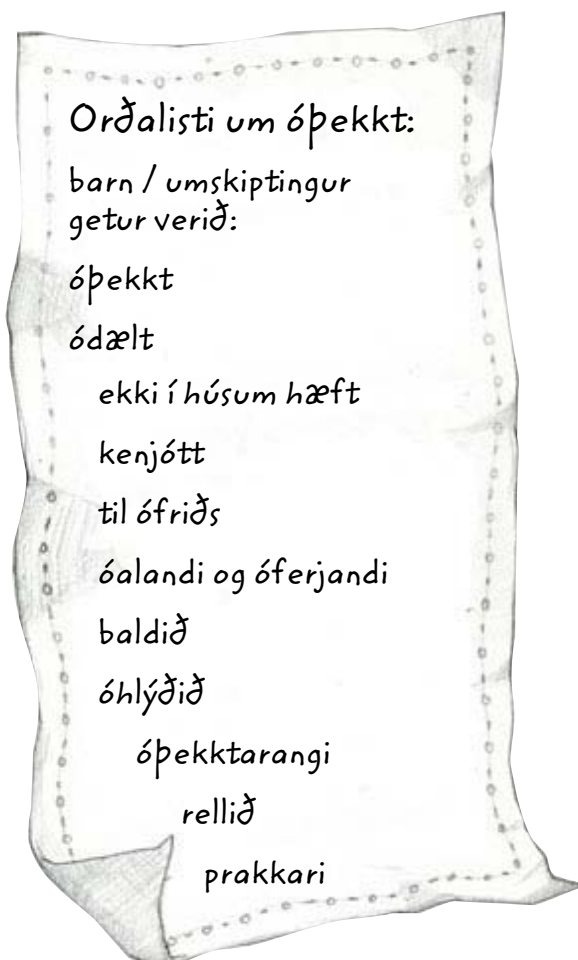 Orðalisti um óþekkt:
barn / umskiptingur
getur verið:
óþekkt
ódælt
ekki í húsum hæft
kenjótt
til ófriðs
óalandi og óferjandi
baldið
óhlýðið
óþekktarangi
rellið
prakkari